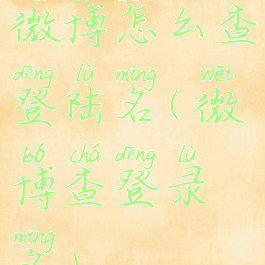 微博怎么查
dēng lù míng wēi
登陆名(微
bó chá dēng lù
博查登录
míng
名)